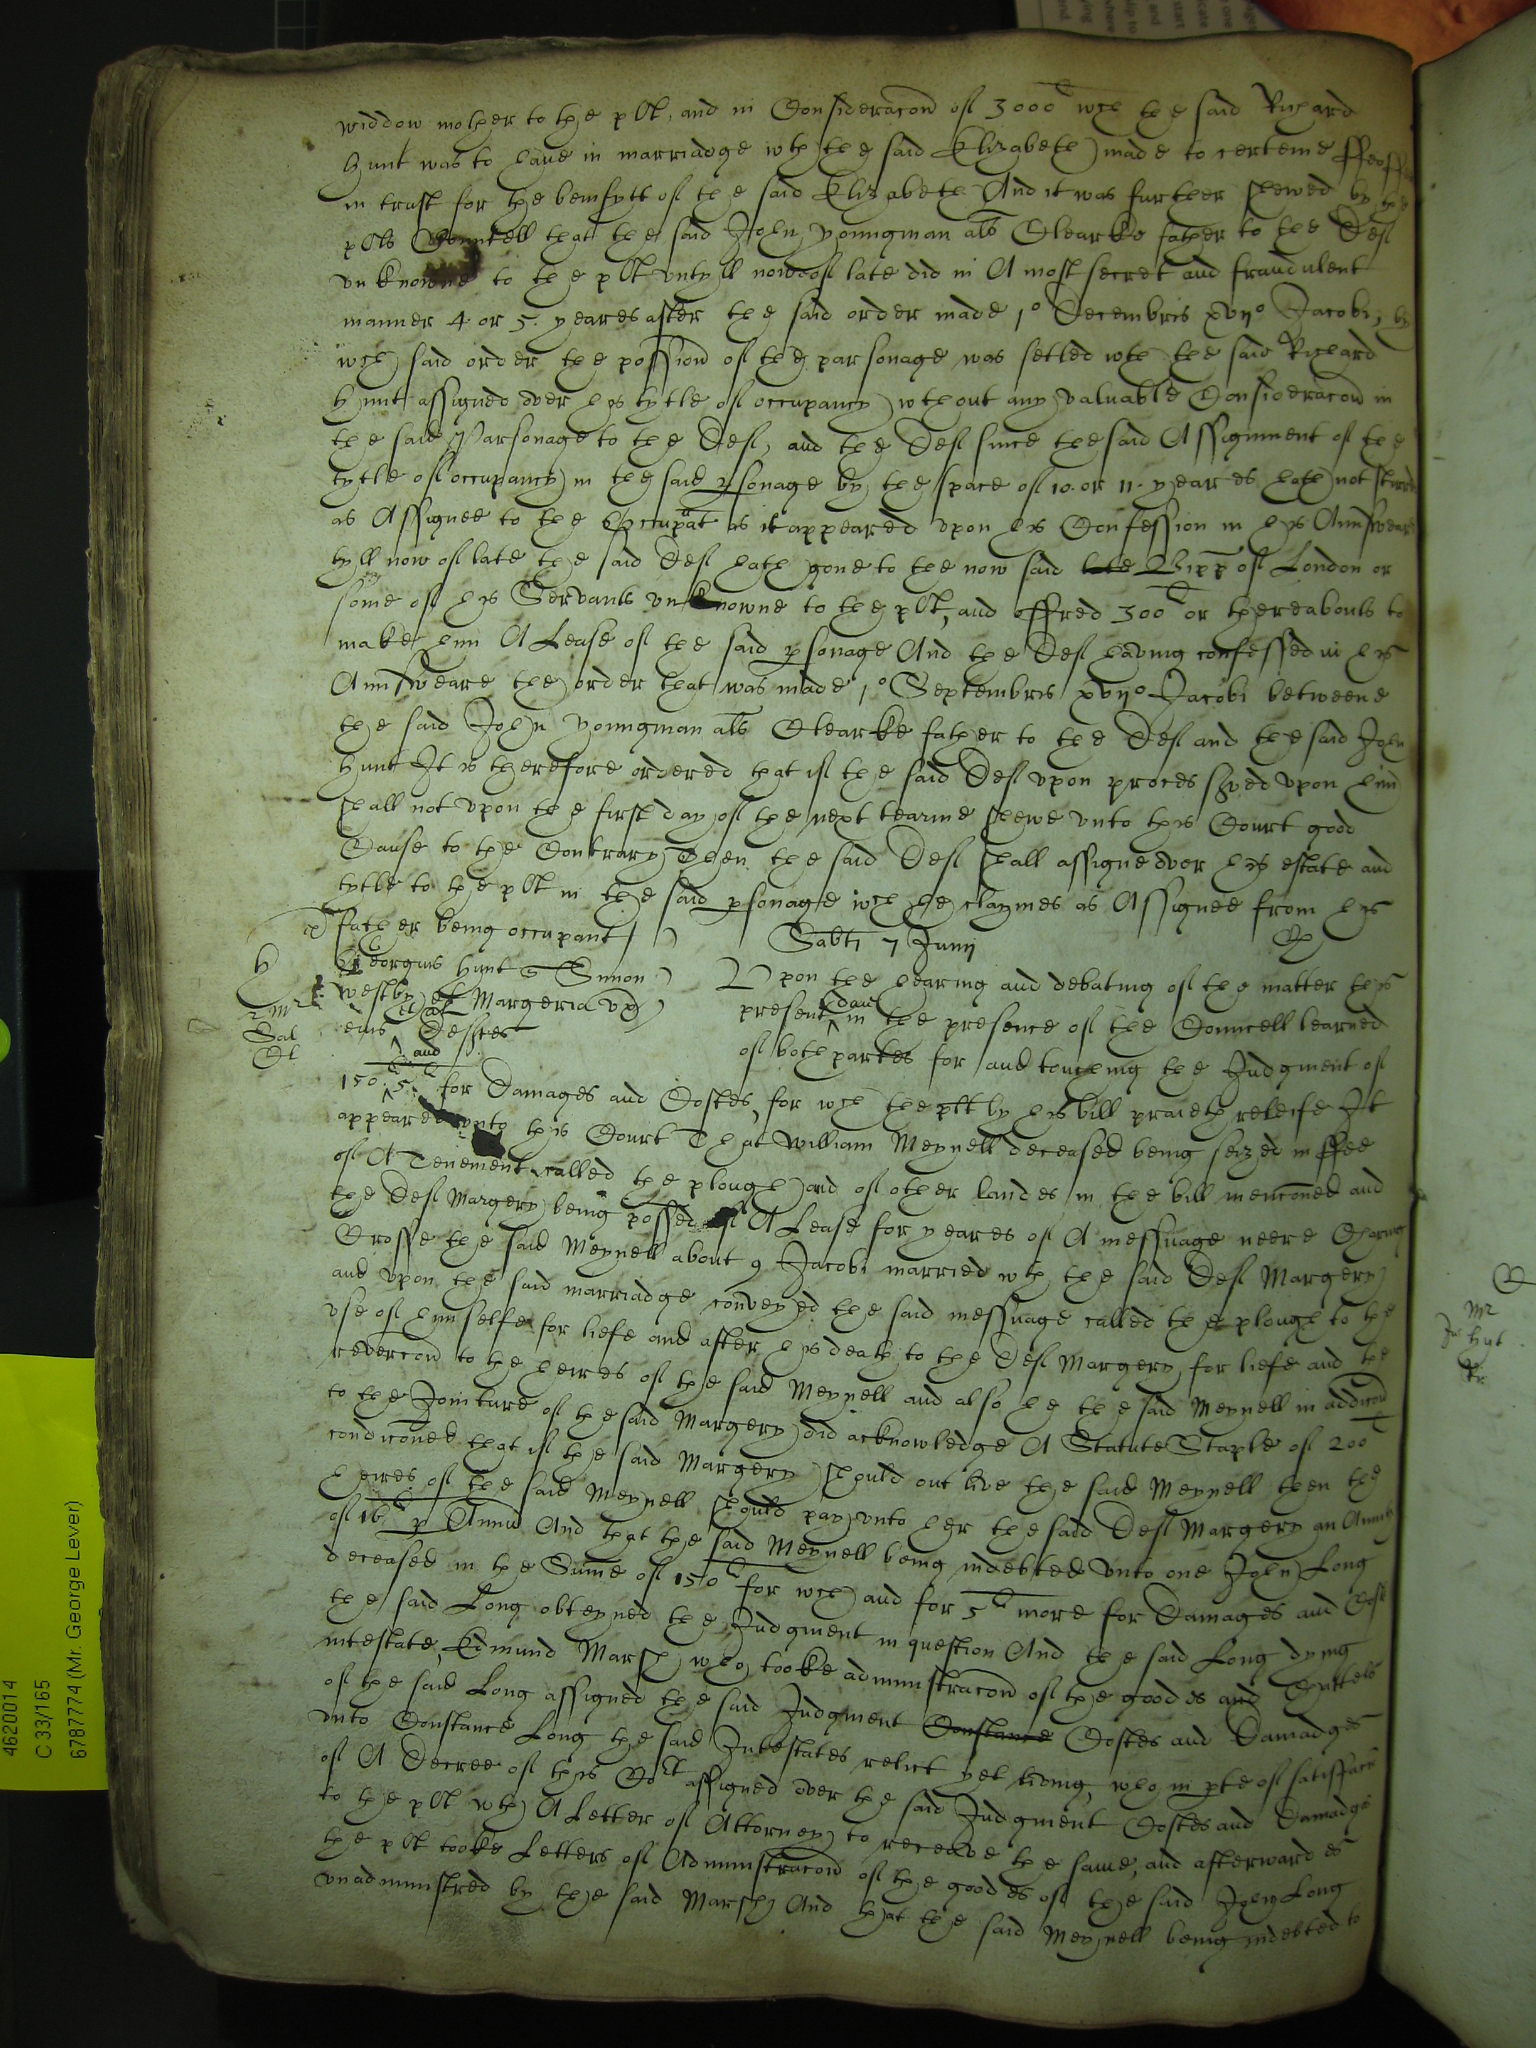 widdow mother to the plt, and in Consideracon of 3000l wch the said Richard
Hunt was to have in marriadge wth the said Elizabeth made to certeine
in trust for the benifytt of the said Elizabeth And it was further shewed by the
plts Counsell that the said John Youngman als Clearke father to the Deft
unknowne to the plt untyll now of late did in A most secret and fraudulent
manner 4 or 5 yeares after the said order made 1o Decembris xviio Jacobi, by
wch said order the possion of the parsonage was setled wth the said Richard
Hunt assigned over his tytle of occupancy wthout any valuable Consideracon in
the said Parsonage to the Deft, and the Deft since the said Assignment of the
tytle of occupancy in the said psonage by the space of 10. or 11. yeares hath not
as Assignee to the Occupat as it appeared upon his Confession in his Annsweare
tyll now of late the said Deft hath gone to the now said late Bipp of London or
some of his Servants unknowne to the plt, and offred 300l or thereabouts to
make him A Lease of the said psonage And the Deft having confessed in his
Annsweare the order that was made 1o Septembris xviio Jacobi betweene
the said John Youngman als Clearke father to the Deft and the said John
Hunt It is therefore ordered that if the said Deft upon proces served upon him
shall not upon the first day of the next tearme shewe unto this Court good
Cause to the Contrary Then the said Deft shall assigne over his estate and
tytle to the plt in the said psonage wch he claymes as Assignee from his
father being occupant
Sabti 7 Junii
Georgius Hunt Simon
Westby et Margeria ux
eius Deftes
Upon the hearing and debating of the matter this
present day in the presence of the Councell learned
of both partes for and touching the Judgment of
150l and 5l for Damages and Costes, for wch the plt by his bill praieth releife It
appeared unto this Court That William Meynell deceased being seized in ffee
of A Tenement called the plough and of other landes in the bill menconed and
the Deft Margery being possed of A Lease for yeares of A messuage neere Charing
Crosse the said Meynell about 9 Jacobi married wth the said Deft Margery
and upon the said marriadge conveyed the said messuage called the plough to the
use of himselfe for liefe and after his death to the Deft Margery for liefe and the
revercon to the heires of the said Meynell and also he the said Meynell in addicon
to the Jointure of the said Margery did acknowledge A Statute Staple of 200l
condiconed that if the said Margery should out live the said Meynell then the
heires of the said Meynell should pay unto her the said Deft Margery an
of 16l p Annu And that the said Meynell being indebted unto one John Long
deceased in the Sume of 150l for wch and for 5l more for Damages and Costs
the said Long obteyned the Judgment in question And the said Long dying
intestate, Edmund Marsh who tooke administracon of the goodes and Chattels
of the said Long assigned the said Judgment Constance Costes and Damadges
unto Constance Long the said Intestates relict yet living, who in pte of satisfaccon
of A Decree of this Cort assigned over the said Judgment Costes and Damadges
to the plt wth A Letter of Attorney to receave the same, and afterwardes
the plt tooke Letters of Administracon of the goodes of the said John Long
unadministred by the said Marsh And that the said Meynell being indebted to
4620014
C 33/165
6787774 (Mr. George Lever)